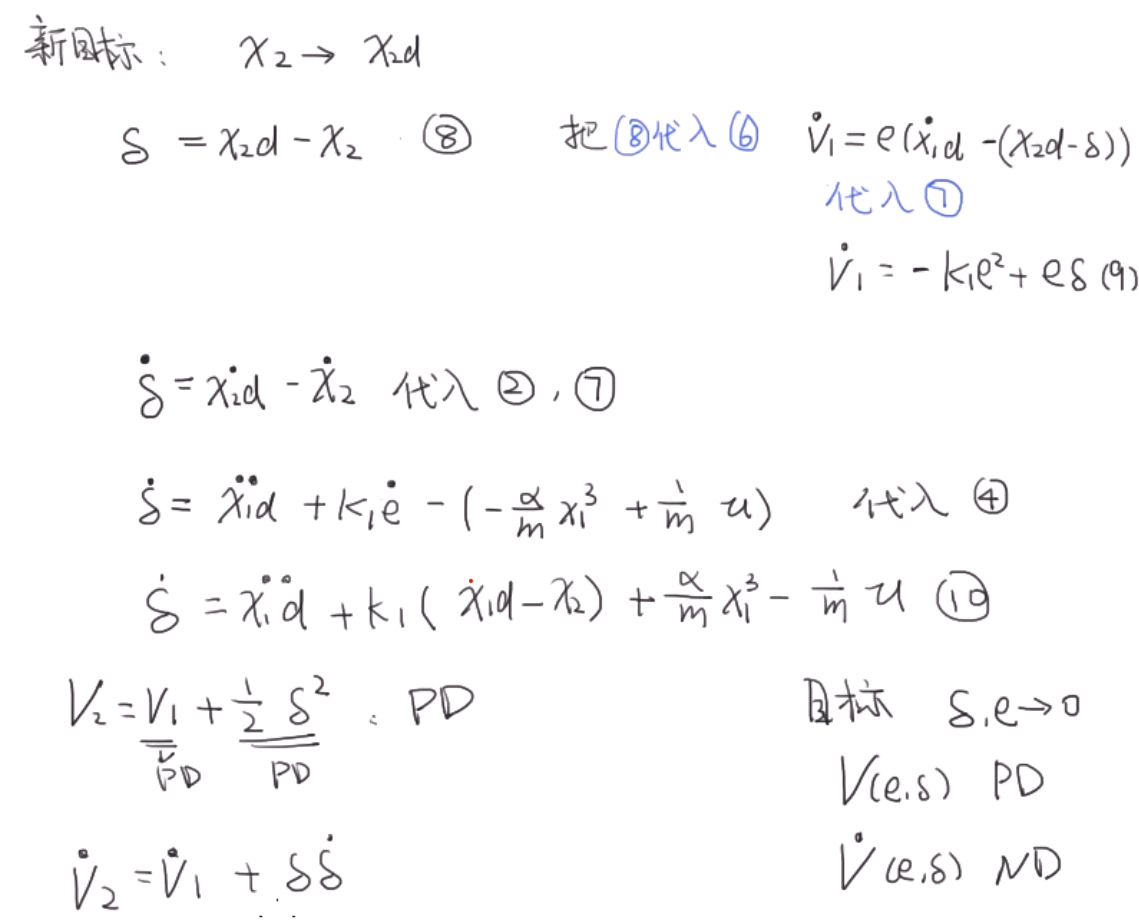 新目标： x₂ → x₂d
δ = x₂d - x₂ ⑧ 把⑧代入⑥ V̇₁ = e(ẋ₁d - (x₂d - δ))
代入⑦
V̇₁ = -k₁e² + eδ (9)
δ̇ = ẋ₂d - ẋ₂ 代入 ②, ⑦
δ̇ = ẍ₁d + k₁ė - (-α/m x₁³ + 1/m u) 代入 ④
δ̇ = ẍ₁d + k₁(ẋ₁d - x₂) + α/m x₁³ - 1/m u ⑩
V₂ = V₁ + 1/2 δ² : PD 目标 δ,e → 0
PD PD V(e,δ) PD
V̇₂ = V̇₁ + δδ̇ V̇(e,δ) ND